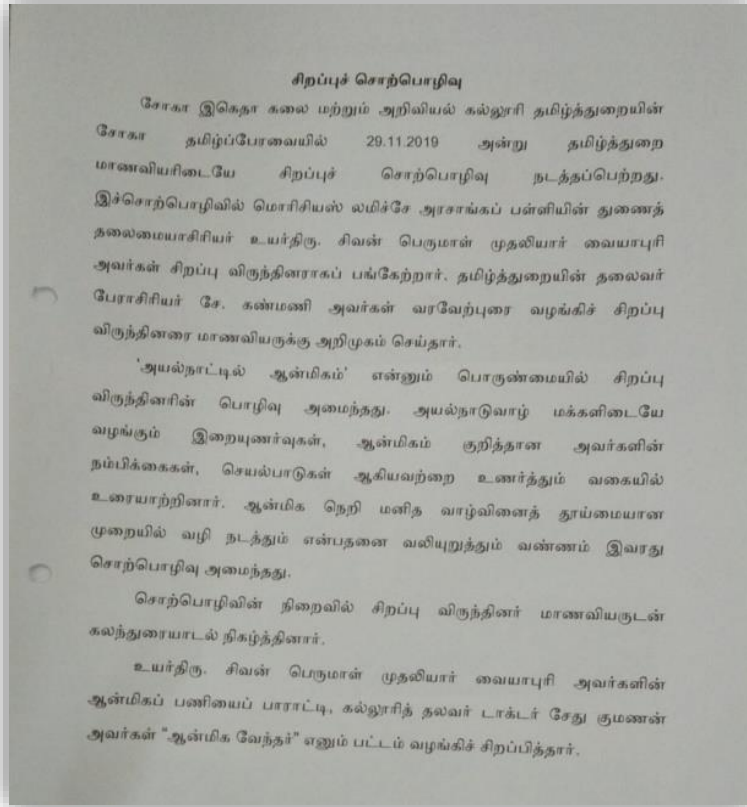 சிறப்புச் சொற்பொழிவு
சோகா இகெதா கலை மற்றும் அறிவியல் கல்லூரி தமிழ்த்துறையின்
சோகா தமிழ்ப்பேரவையில் 29.11.2019 அன்று தமிழ்த்துறை
மாணவியரிடையே சிறப்புச் சொற்பொழிவு நடத்தப்பெற்றது.
இச்சொற்பொழிவில் மொரிசியஸ் லமிச்சே அரசாங்கப் பள்ளியின் துணைத்
தலைமையாசிரியர் உயர்திரு. சிவன் பெருமாள் முதலியார் வையாபுரி
அவர்கள் சிறப்பு விருந்தினராகப் பங்கேற்றார். தமிழ்த்துறையின் தலைவர்
பேராசிரியர் சே. கண்மணி அவர்கள் வரவேற்புரை வழங்கிச் சிறப்பு
விருந்தினரை மாணவியருக்கு அறிமுகம் செய்தார்.
'அயல்நாட்டில் ஆன்மிகம்' என்னும் பொருண்மையில் சிறப்பு
விருந்தினரின் பொழிவு அமைந்தது. அயல்நாடுவாழ் மக்களிடையே
வழங்கும் இறையுணர்வுகள், ஆன்மிகம் குறித்தான அவர்களின்
நம்பிக்கைகள், செயல்பாடுகள் ஆகியவற்றை உணர்த்தும் வகையில்
உரையாற்றினார். ஆன்மிக நெறி மனித வாழ்வினைத் தூய்மையான
முறையில் வழி நடத்தும் என்பதனை வலியுறுத்தும் வண்ணம் இவரது
சொற்பொழிவு அமைந்தது.
சொற்பொழிவின் நிறைவில் சிறப்பு விருந்தினர் மாணவியருடன்
கலந்துரையாடல் நிகழ்த்தினார்.
உயர்திரு. சிவன் பெருமாள் முதலியார் வையாபுரி அவர்களின்
ஆன்மிகப் பணியைப் பாராட்டி, கல்லூரித் தலவர் டாக்டர் சேது குமணன்
அவர்கள் "ஆன்மிக வேந்தர்" எனும் பட்டம் வழங்கிச் சிறப்பித்தார்.